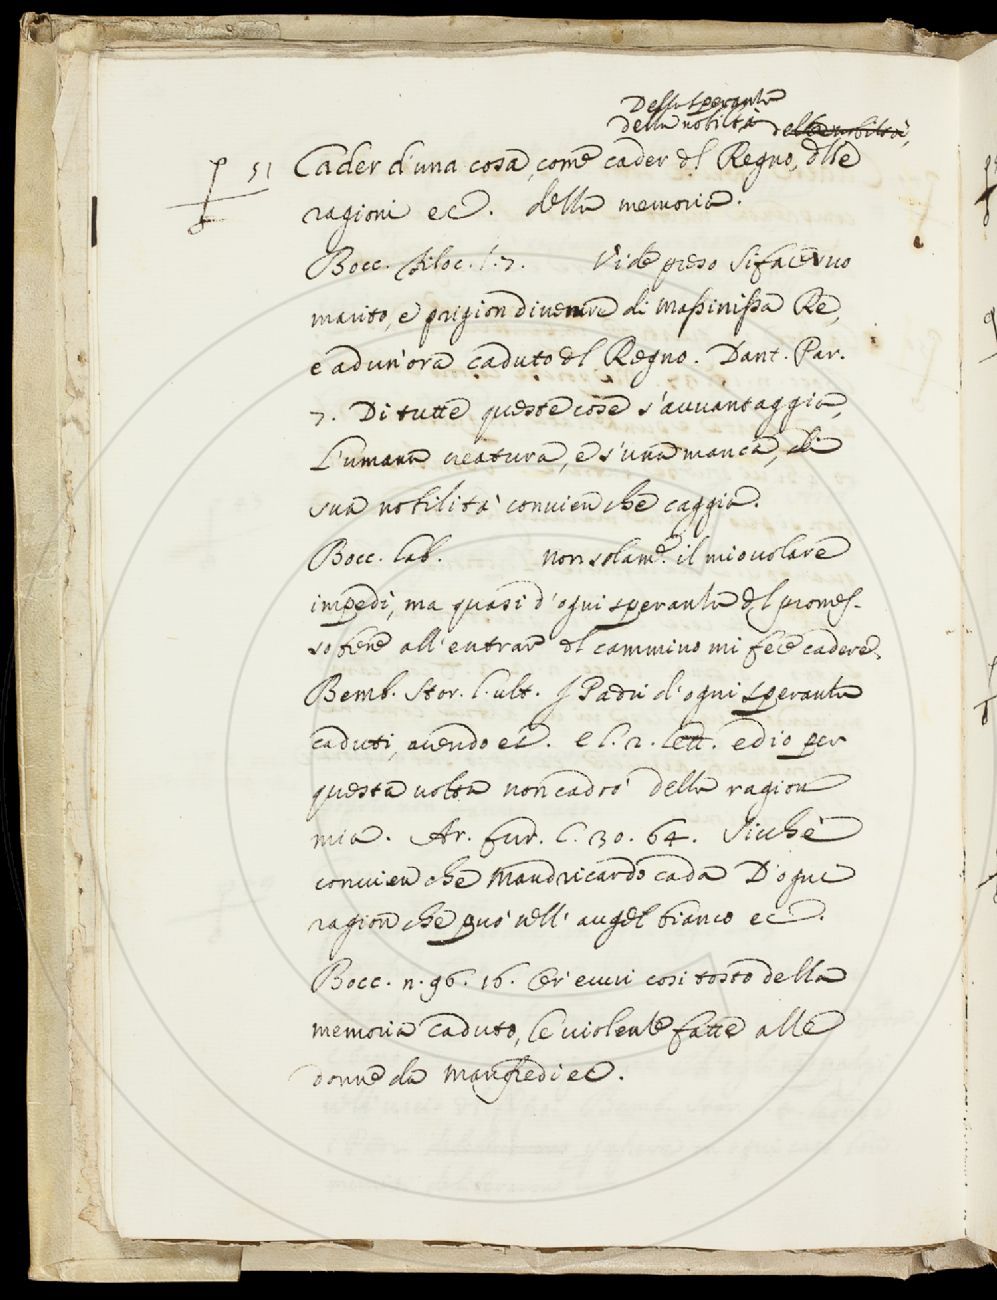 Della speranza
della nobiltà della nobiltà,
51 Cader d'una cosa, come cader del Regno, delle
ragioni ec. della memoria.
Bocc. filoc. l. 7. Vide preso Siface suo
marito, e prigion divenire di Massinissa Re,
e ad un'ora caduto del Regno. Dant. Par.
7. Di tutte queste cose s'avvantaggia,
L'umana creatura, e s'una manca, di
sua nobilità convien che caggia.
Bocc. lab. non solam.e il mio volare
impedì, ma quasi d'ogni speranza del promes-
so bene all'entrar del cammino mi fece cadere.
Bemb. Stor. l. ult. I Padri d'ogni speranza
caduti, avendo ec. e l. 2. lett. ed io per
questa volta non cadrò della ragion
mia. Ar. fur. c. 30. 64. Sicchè
convien che Mandricardo cada D'ogni
ragion che può nell'augel bianco ec.
Bocc. n. 96. 16. evvi così tosto della
memoria caduto, le violenze fatte alle
donne da Manfredi ec.